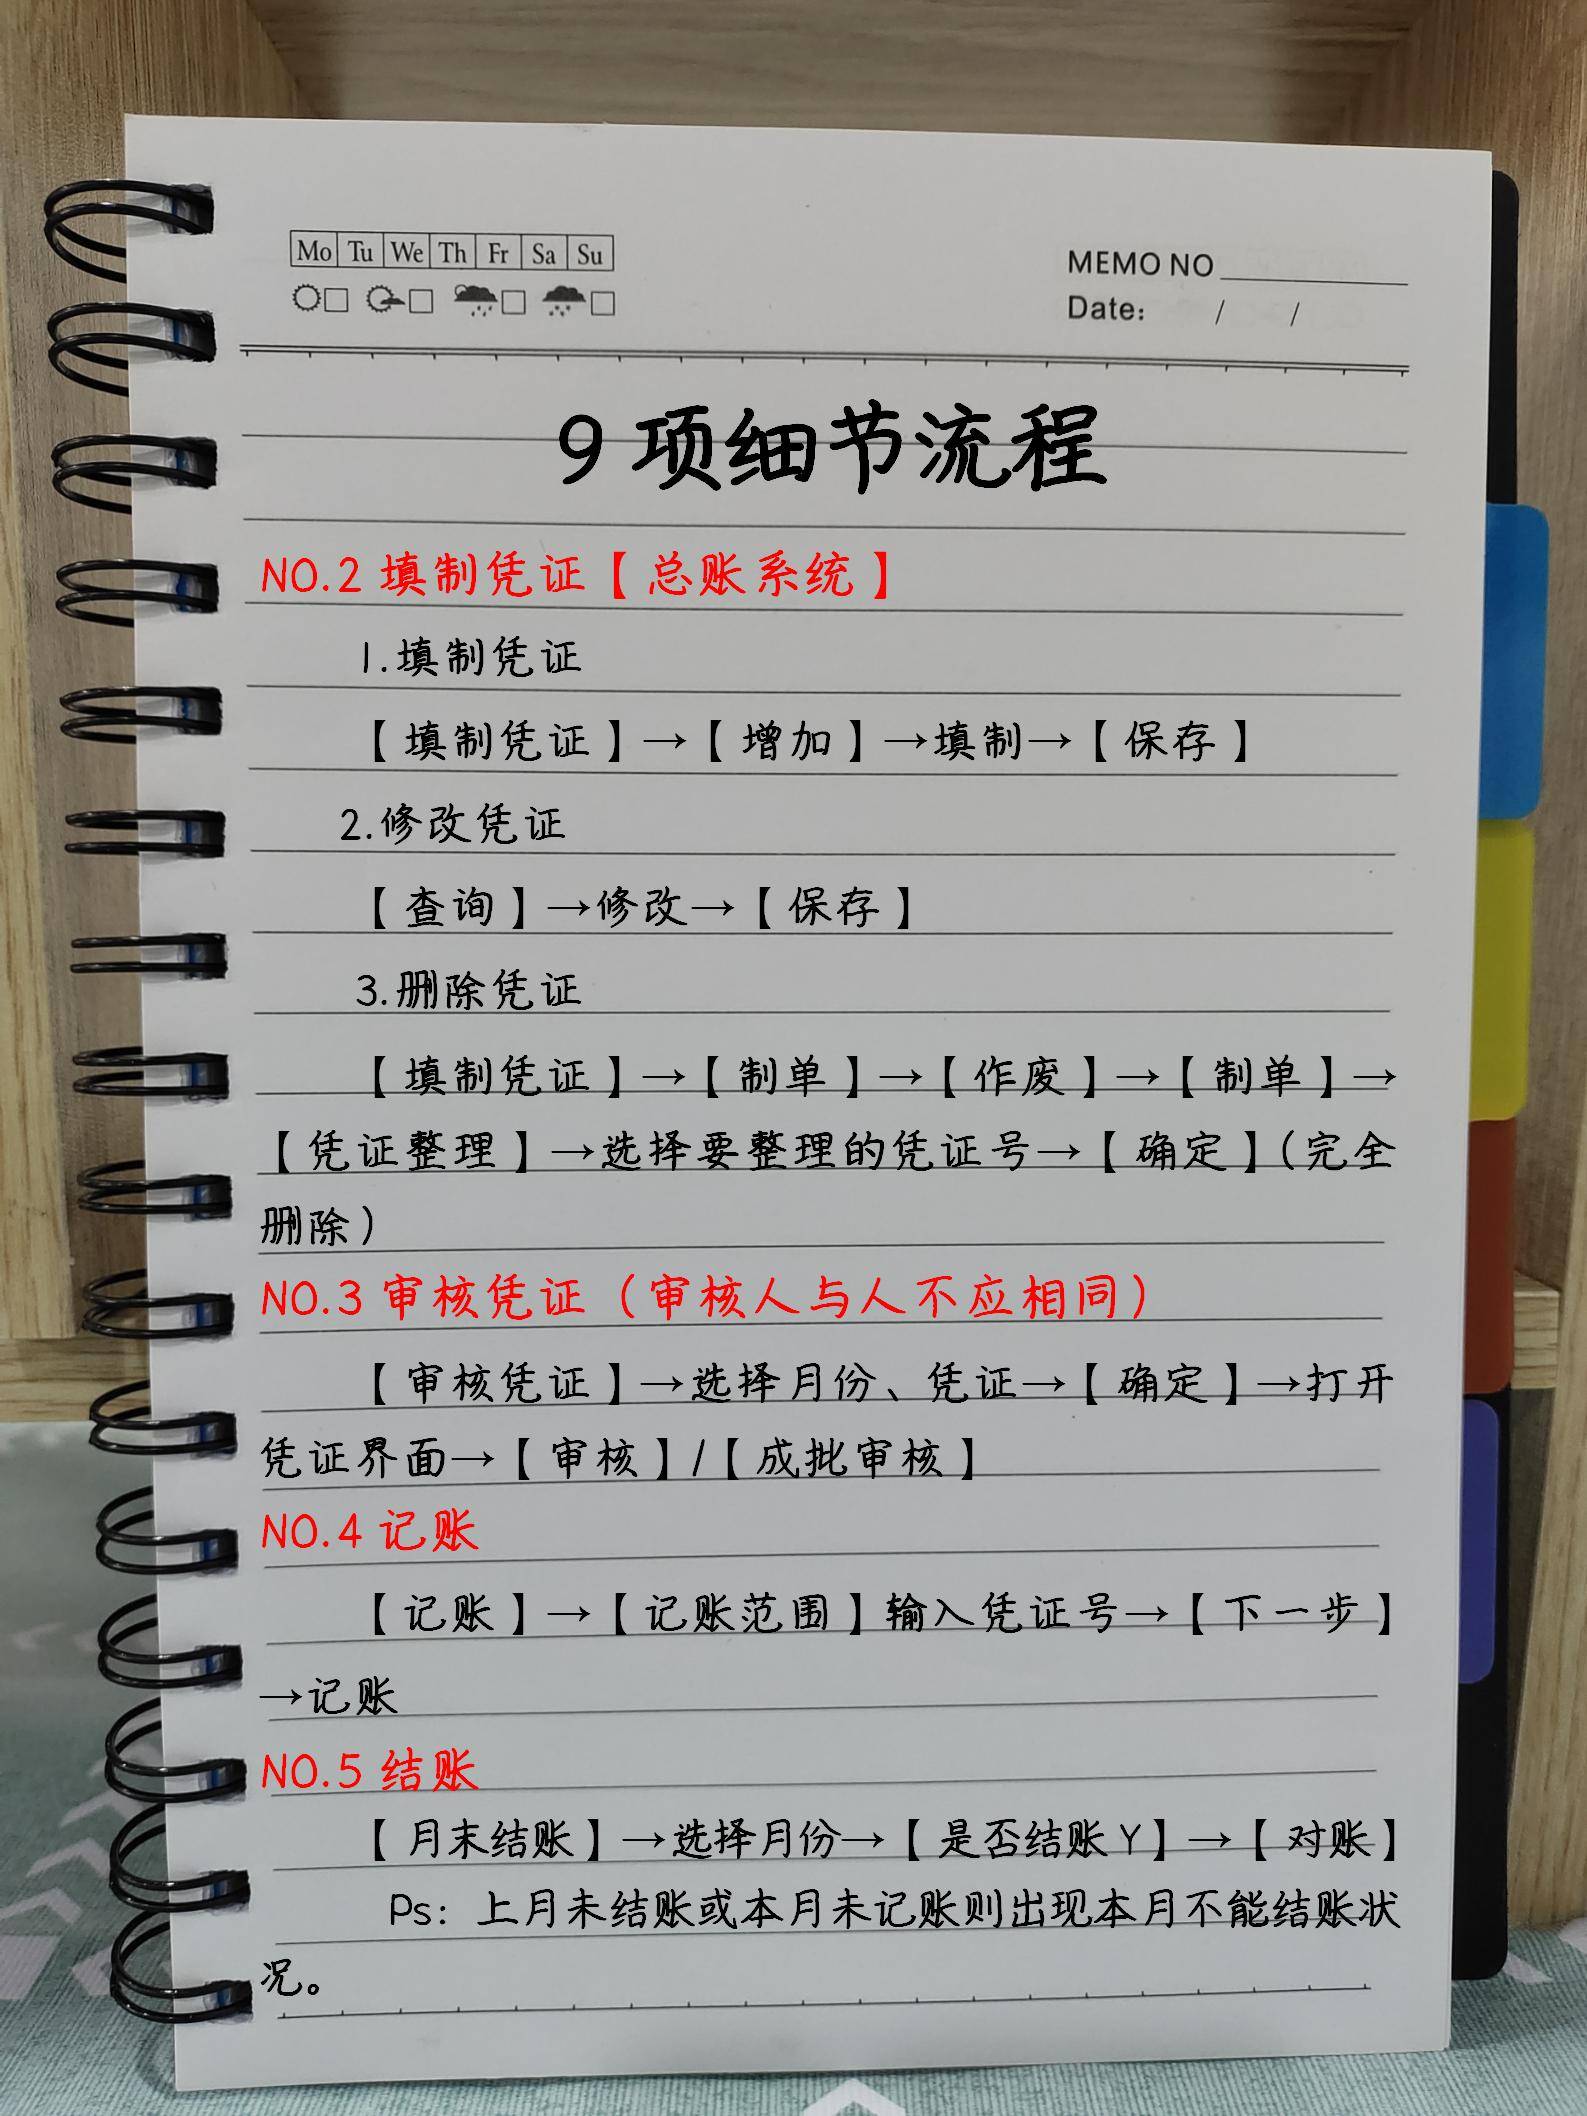 Mo Tu We Th Fr Sa Su
MEMO NO
Date: / /
9项细节流程
NO.2 填制凭证【总账系统】
1.填制凭证
【填制凭证】→【增加】→填制→【保存】
2.修改凭证
【查询】→修改→【保存】
3.删除凭证
【填制凭证】→【制单】→【作废】→【制单】→
【凭证整理】→选择要整理的凭证号→【确定】(完全
删除)
NO.3 审核凭证（审核人与人不应相同）
【审核凭证】→选择月份、凭证→【确定】→打开
凭证界面→【审核】/【成批审核】
NO.4 记账
【记账】→【记账范围】输入凭证号→【下一步】
→记账
NO.5 结账
【月末结账】→选择月份→【是否结账Y】→【对账】
Ps：上月未结账或本月未记账则出现本月不能结账状
况。